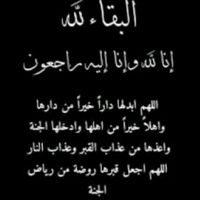 البقاء لله
إنا لله وإنا إليه راجعون
اللهم ابدلها داراً خيراً من دارها
واهلاً خيراً من اهلها وادخلها الجنة
واعذها من عذاب القبر وعذاب النار
اللهم اجعل قبرها روضة من رياض
الجنة